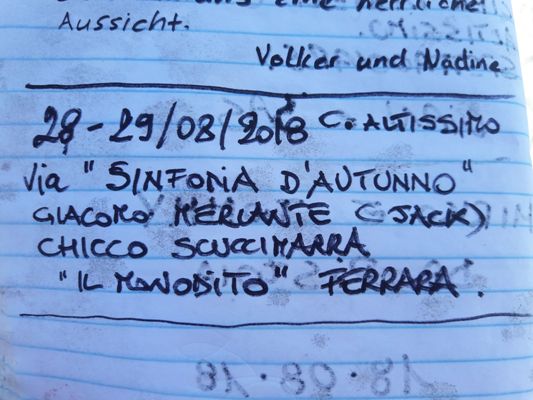 und eine herrliche
Aussicht.
Volker und Nadine
28-29/08/2018 C. ALTISSIMO
Via "SINFONIA D'AUTUNNO"
GIACOMO MERCANTE (JACK)
CHICCO SCUCCIMARRA
"IL MONODITO" FERRARA.
18.08.18